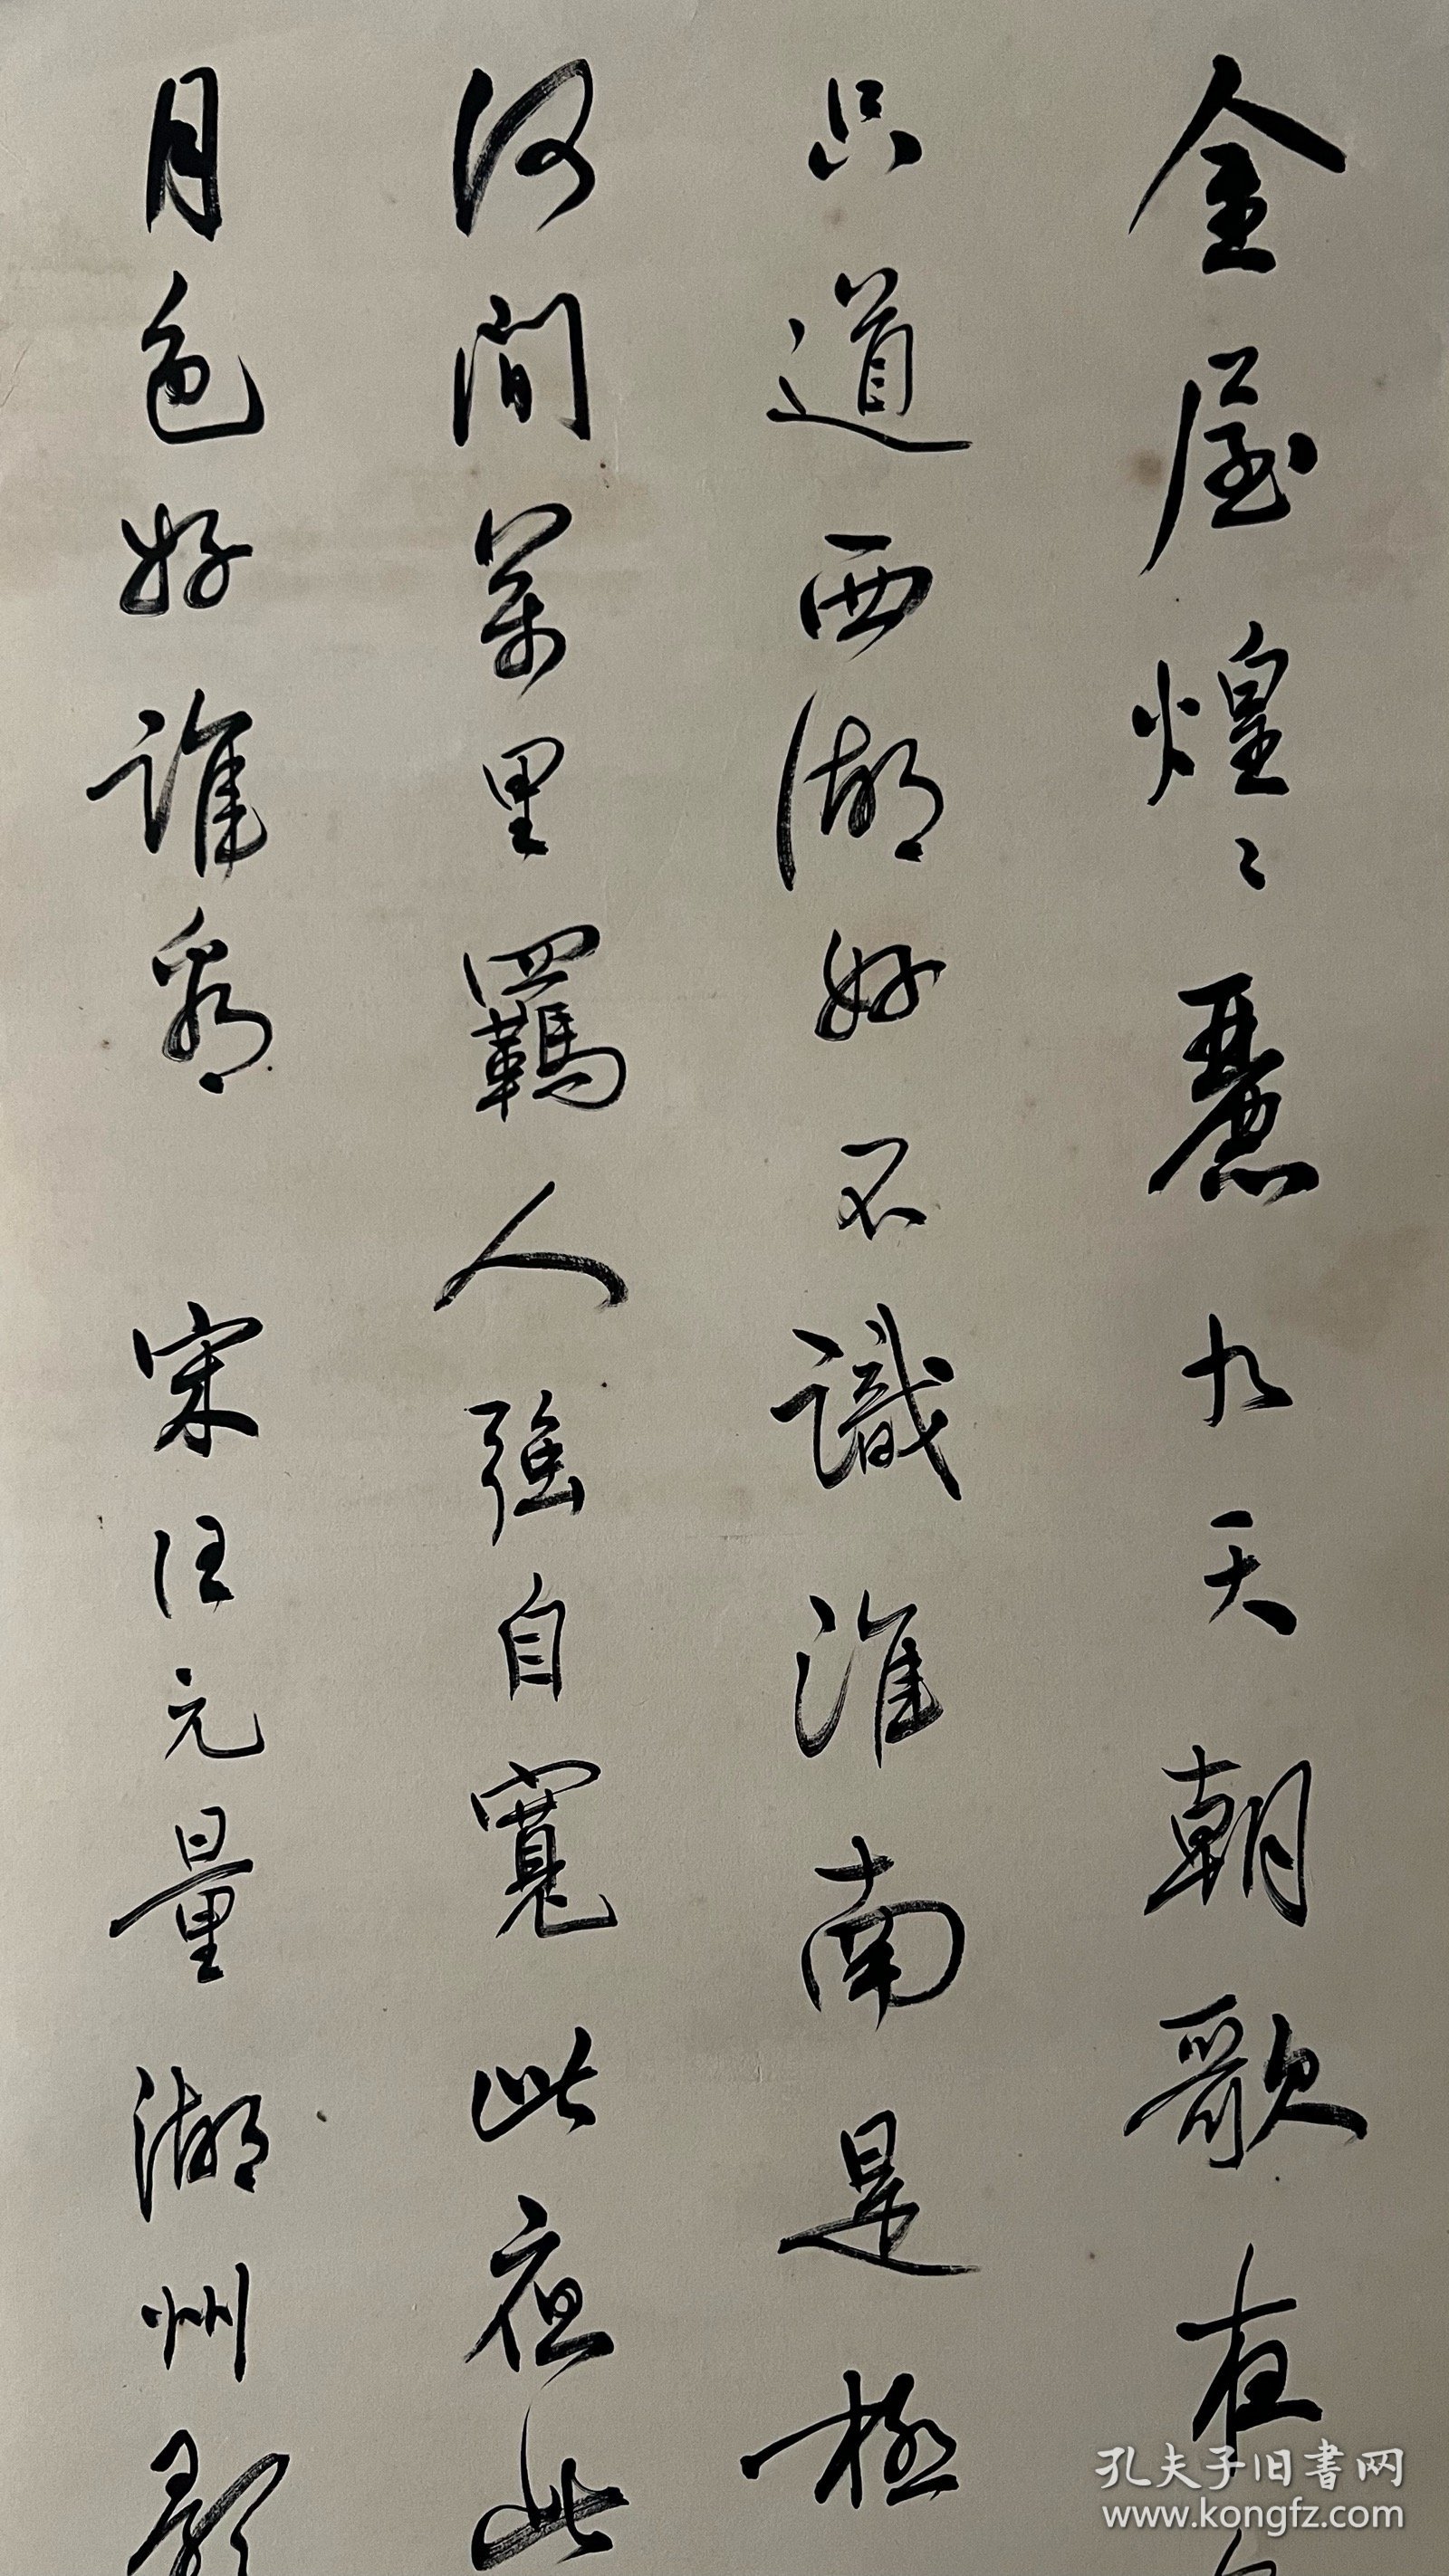 金屋煌々麗九天朝歌在
只道西湖好不識淮南是極
河間萬里羈人強自寬此夜此
月色好誰看 宋汪元量湖州歌
孔夫子旧书网
www.kongfz.com